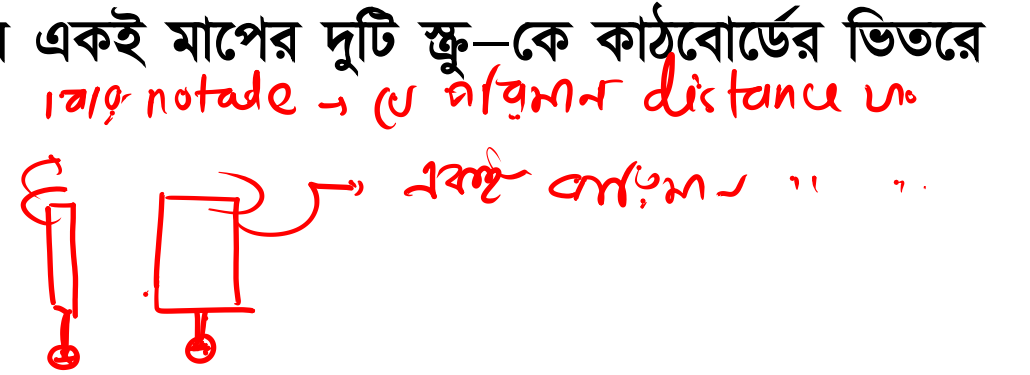 একই মাপের দুটি স্ক্রু–কে কাঠবোর্ডের ভিতরে
notate → যে পরিমান distance
একই